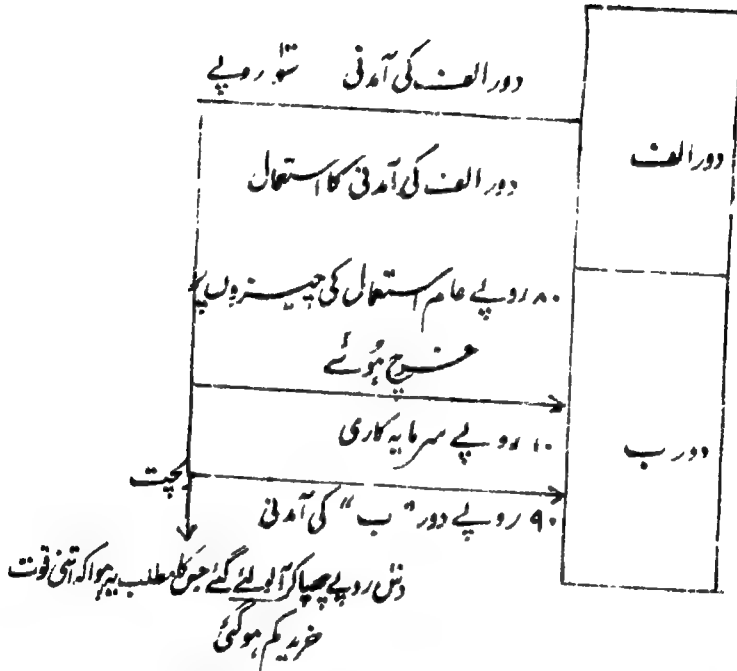 دور الف کی آمدنی سٹو روپے
دور الف
دور الف کی آمدنی کا استعمال
۸۰ روپے عام استعمال کی چیزوں پر
خرچ ہوئے
۱۰ روپے سرمایہ کاری
دور ب
بچت
۹۰ روپے دور "ب" کی آمدنی
دس روپے چھپا کر لئے گئے جس کا مطلب یہ ہوا کہ اتنی قوت
خرید کم ہوگئی